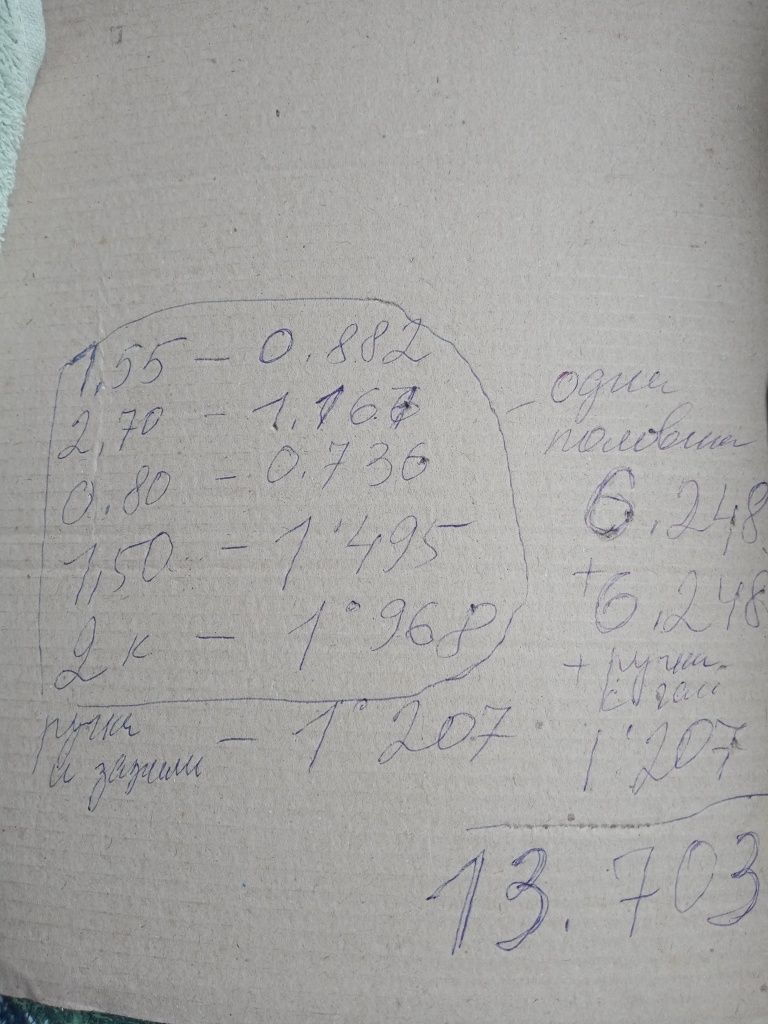 1,55 – 0.882
2,70 – 1.167
0.80 – 0.736
1,50 – 1'495
2к – 1°968
ручки
и зажими – 1°207
одна
половина
6.248
+6.248
+ ручки
1'207
13.703